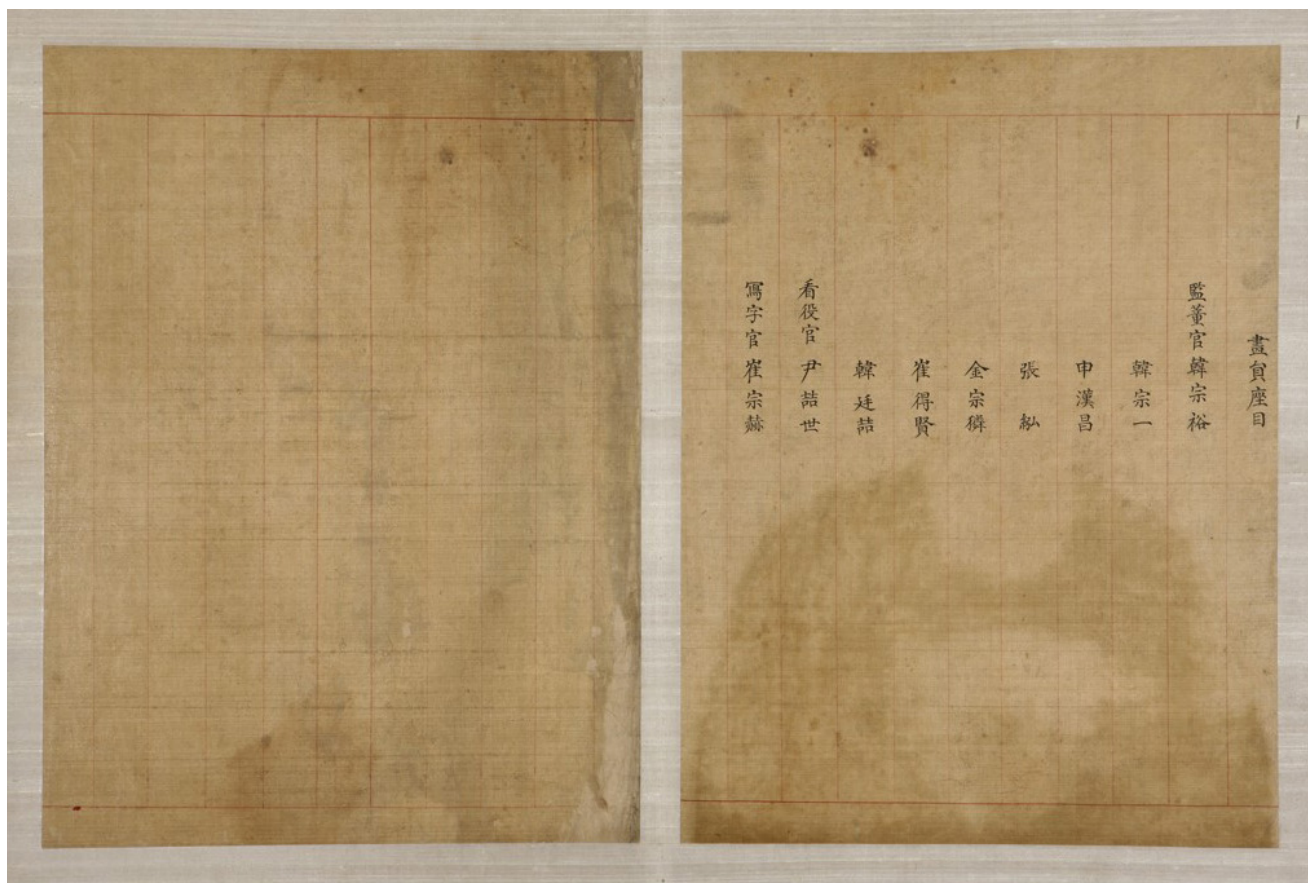 畫貟座目
監董官 韓宗裕
韓宗一
申漢昌
張紭
金宗獜
崔得賢
韓廷喆
看役官 尹喆世
寫字官 崔宗赫